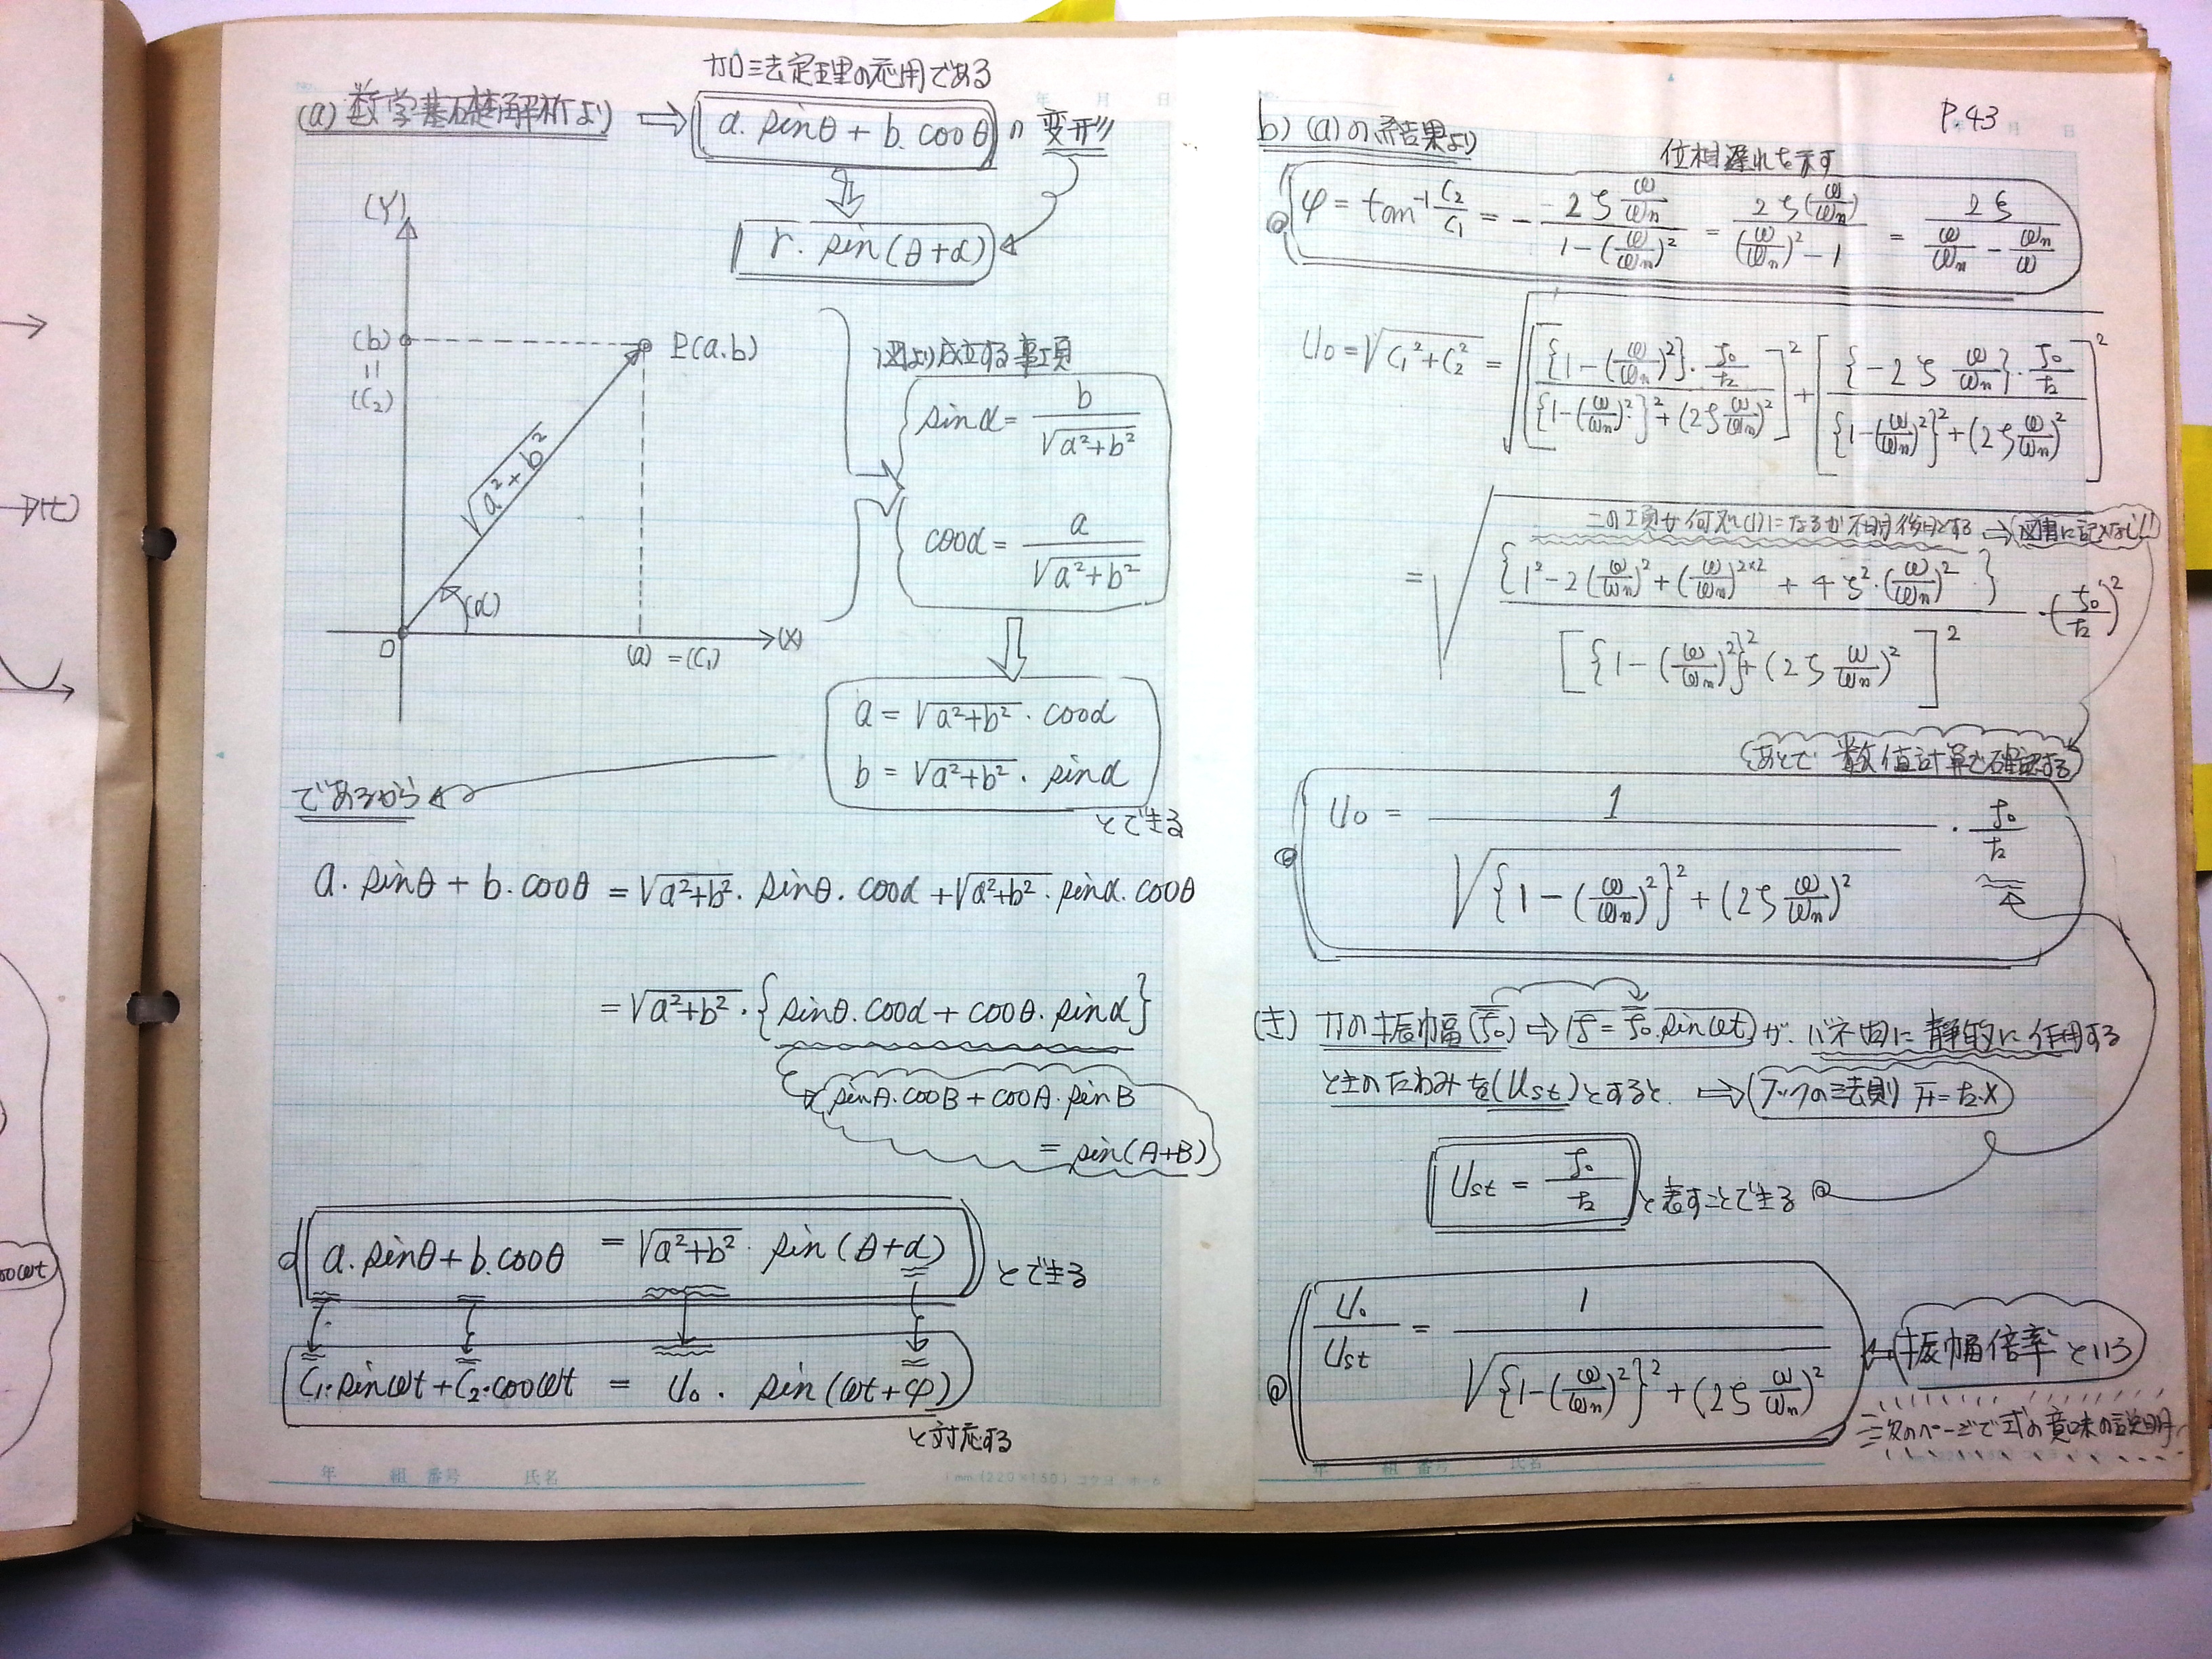 加法定理の応用である
(a) 数学基礎解析より ⇒ a. sinθ + b. cosθ の 変形
r. sin(θ+α)
(Y)
(b)
=
(C2)
P(a.b)
√a²+b²
(α)
O
(a) = (C1)
(X)
図より成立する事項
sinα = b / √a²+b²
cosα = a / √a²+b²
a = √a²+b² . cosα
b = √a²+b² . sinα
とできる
であるから
a. sinθ + b. cosθ = √a²+b² . sinθ. cosα + √a²+b² . sinα. cosθ
= √a²+b² . {sinθ. cosα + cosθ. sinα}
sinA. cosB + cosA. sinB
= sin(A+B)
a. sinθ + b. cosθ = √a²+b² . sin(θ+α) とできる
C1. sinωt + C2. cosωt = U0 . sin(ωt+φ)
と対応する
年 組 番号 氏名
P.43
b) (a)の結果より
位相遅れを示す
φ = tan⁻¹ C2/C1 = - -2ζ ω/ωn / 1-(ω/ωn)² = 2ζ(ω/ωn) / (ω/ωn)²-1 = 2ζ / ω/ωn - ωn/ω
U0 = √C1²+C2² = √[{1-(ω/ωn)²}. f0/k / {1-(ω/ωn)²}²+(2ζ ω/ωn)²]² + [{-2ζ ω/ωn}. f0/k / {1-(ω/ωn)²}²+(2ζ ω/ωn)²]²
⇒ 図書に記入なし!!
= √{1²-2(ω/ωn)²+(ω/ωn)²ˣ² + 4ζ².(ω/ωn)²} / [{1-(ω/ωn)²}²+(2ζ ω/ωn)²]² . (f0/k)²
あとで 数値計算で確認する
U0 = 1 / √{1-(ω/ωn)²}²+(2ζ ω/ωn)² . f0/k
(き) 力の振幅(f0) ⇒ f = f0. sinωt が、バネ(k)に静的に作用する
ときのたわみを(Ust)とすると、⇒ (フックの法則) F=k.x
Ust = f0/k と表すことできる
U0/Ust = 1 / √{1-(ω/ωn)²}²+(2ζ ω/ωn)² ← 振幅倍率という
次のページで式の意味の説明
年 組 番号 氏名